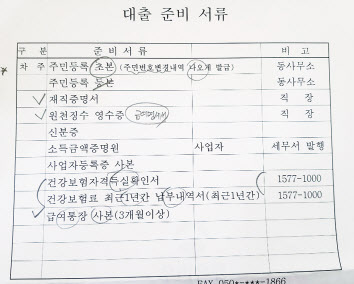 대출 준비 서류
구 분 준 비 서 류 비 고
차 주 주민등록 초본 (주민번호변경내역 나오게 발급) 동사무소
주민등록 등본 동사무소
재직증명서 직 장
원천징수 영수증 직 장
신분증
소득금액증명원 사업자 세무서 발행
사업자등록증 사본
건강보험자격득실확인서 1577-1000
건강보험료 최근1년간 납부내역서(최근1년간) 1577-1000
급여통장 사본(3개월이상)
FAX 050*-***-1866